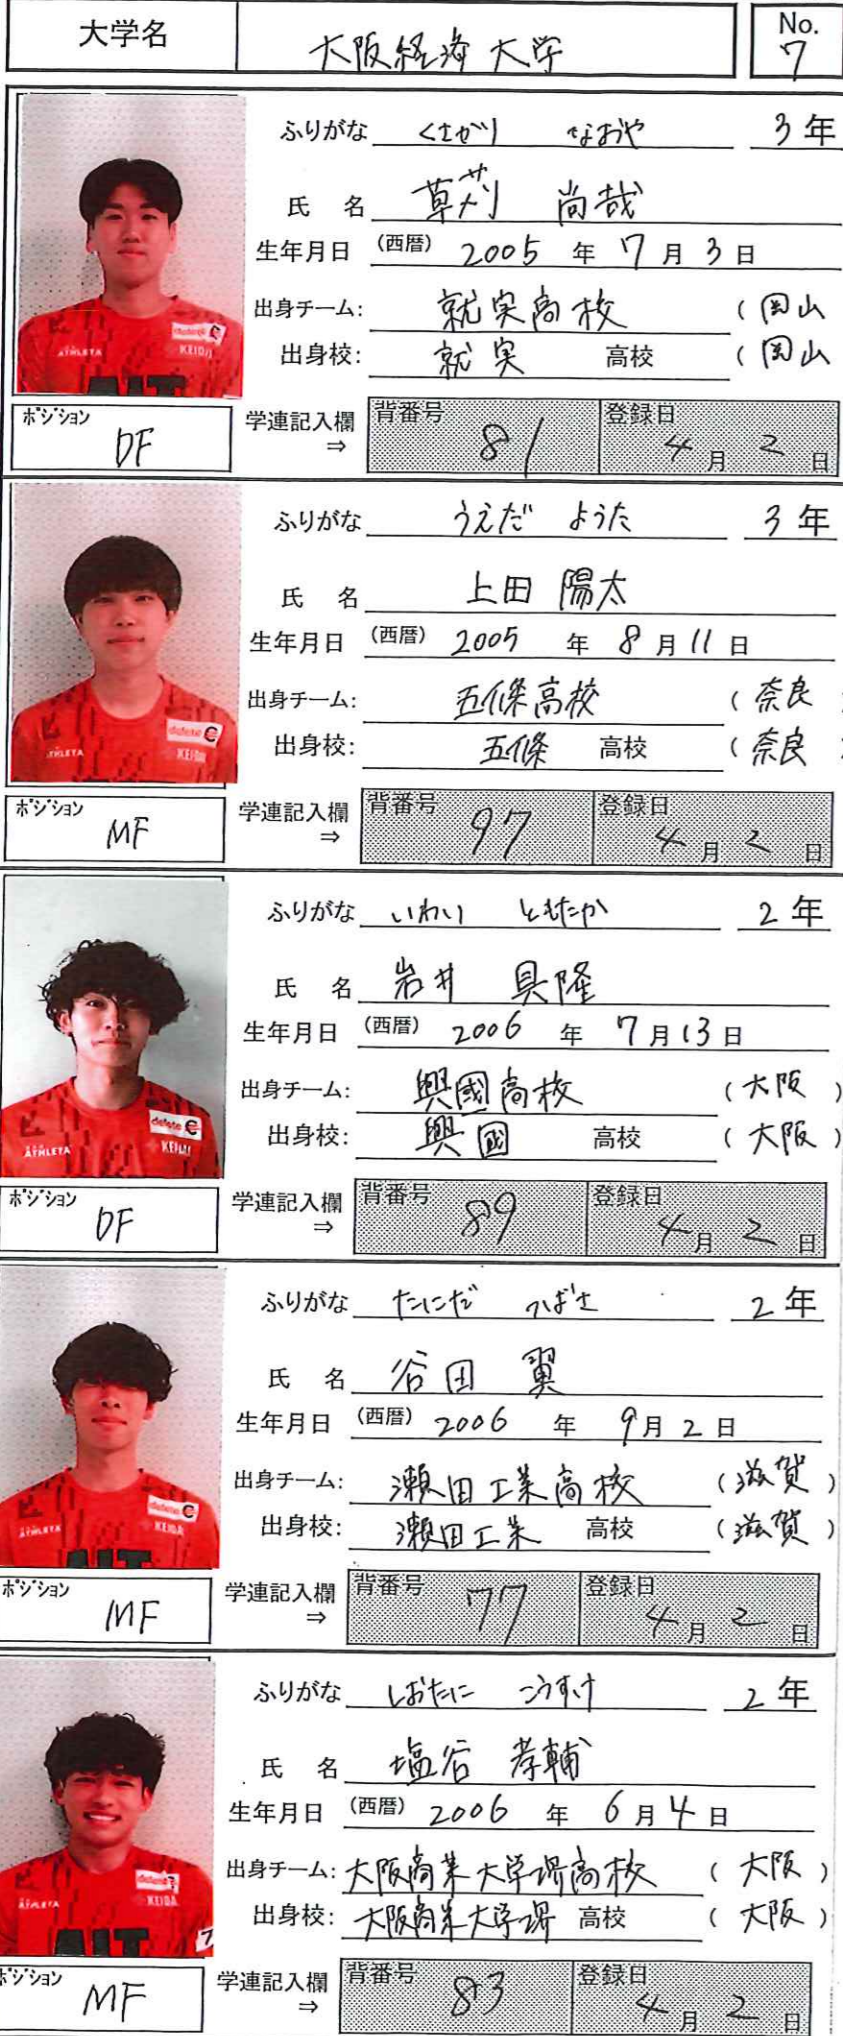 大学名 大阪経済大学 No. 7
ふりがな くさかり なおや 3年
氏 名 草刈 尚哉
生年月日 (西暦) 2005 年 7 月 3 日
出身チーム: 就実高校 (岡山
出身校: 就実 高校 (岡山
ATHLETA KEIDAI
ポジション DF 学連記入欄⇒ 背番号 81 登録日 4月2日
ふりがな うえだ ようた 3年
氏 名 上田 陽太
生年月日 (西暦) 2005 年 8 月 11 日
出身チーム: 五條高校 (奈良
出身校: 五條 高校 (奈良
ATHLETA KEIDAI
ポジション MF 学連記入欄⇒ 背番号 97 登録日 4月2日
ふりがな いわい ともたか 2年
氏 名 岩井 具隆
生年月日 (西暦) 2006 年 7 月 13 日
出身チーム: 興國高校 (大阪)
出身校: 興國 高校 (大阪)
ATHLETA KEIDAI
ポジション DF 学連記入欄⇒ 背番号 89 登録日 4月2日
ふりがな たにだ つばさ 2年
氏 名 谷田 翼
生年月日 (西暦) 2006 年 9 月 2 日
出身チーム: 瀬田工業高校 (滋賀)
出身校: 瀬田工業 高校 (滋賀)
ATHLETA KEIDAI
ポジション MF 学連記入欄⇒ 背番号 77 登録日 4月2日
ふりがな しおたに こうすけ 2年
氏 名 塩谷 孝輔
生年月日 (西暦) 2006 年 6 月 4 日
出身チーム: 大阪商業大学堺高校 (大阪)
出身校: 大阪商業大学堺 高校 (大阪)
ATHLETA KEIDAI
ポジション MF 学連記入欄⇒ 背番号 83 登録日 4月2日